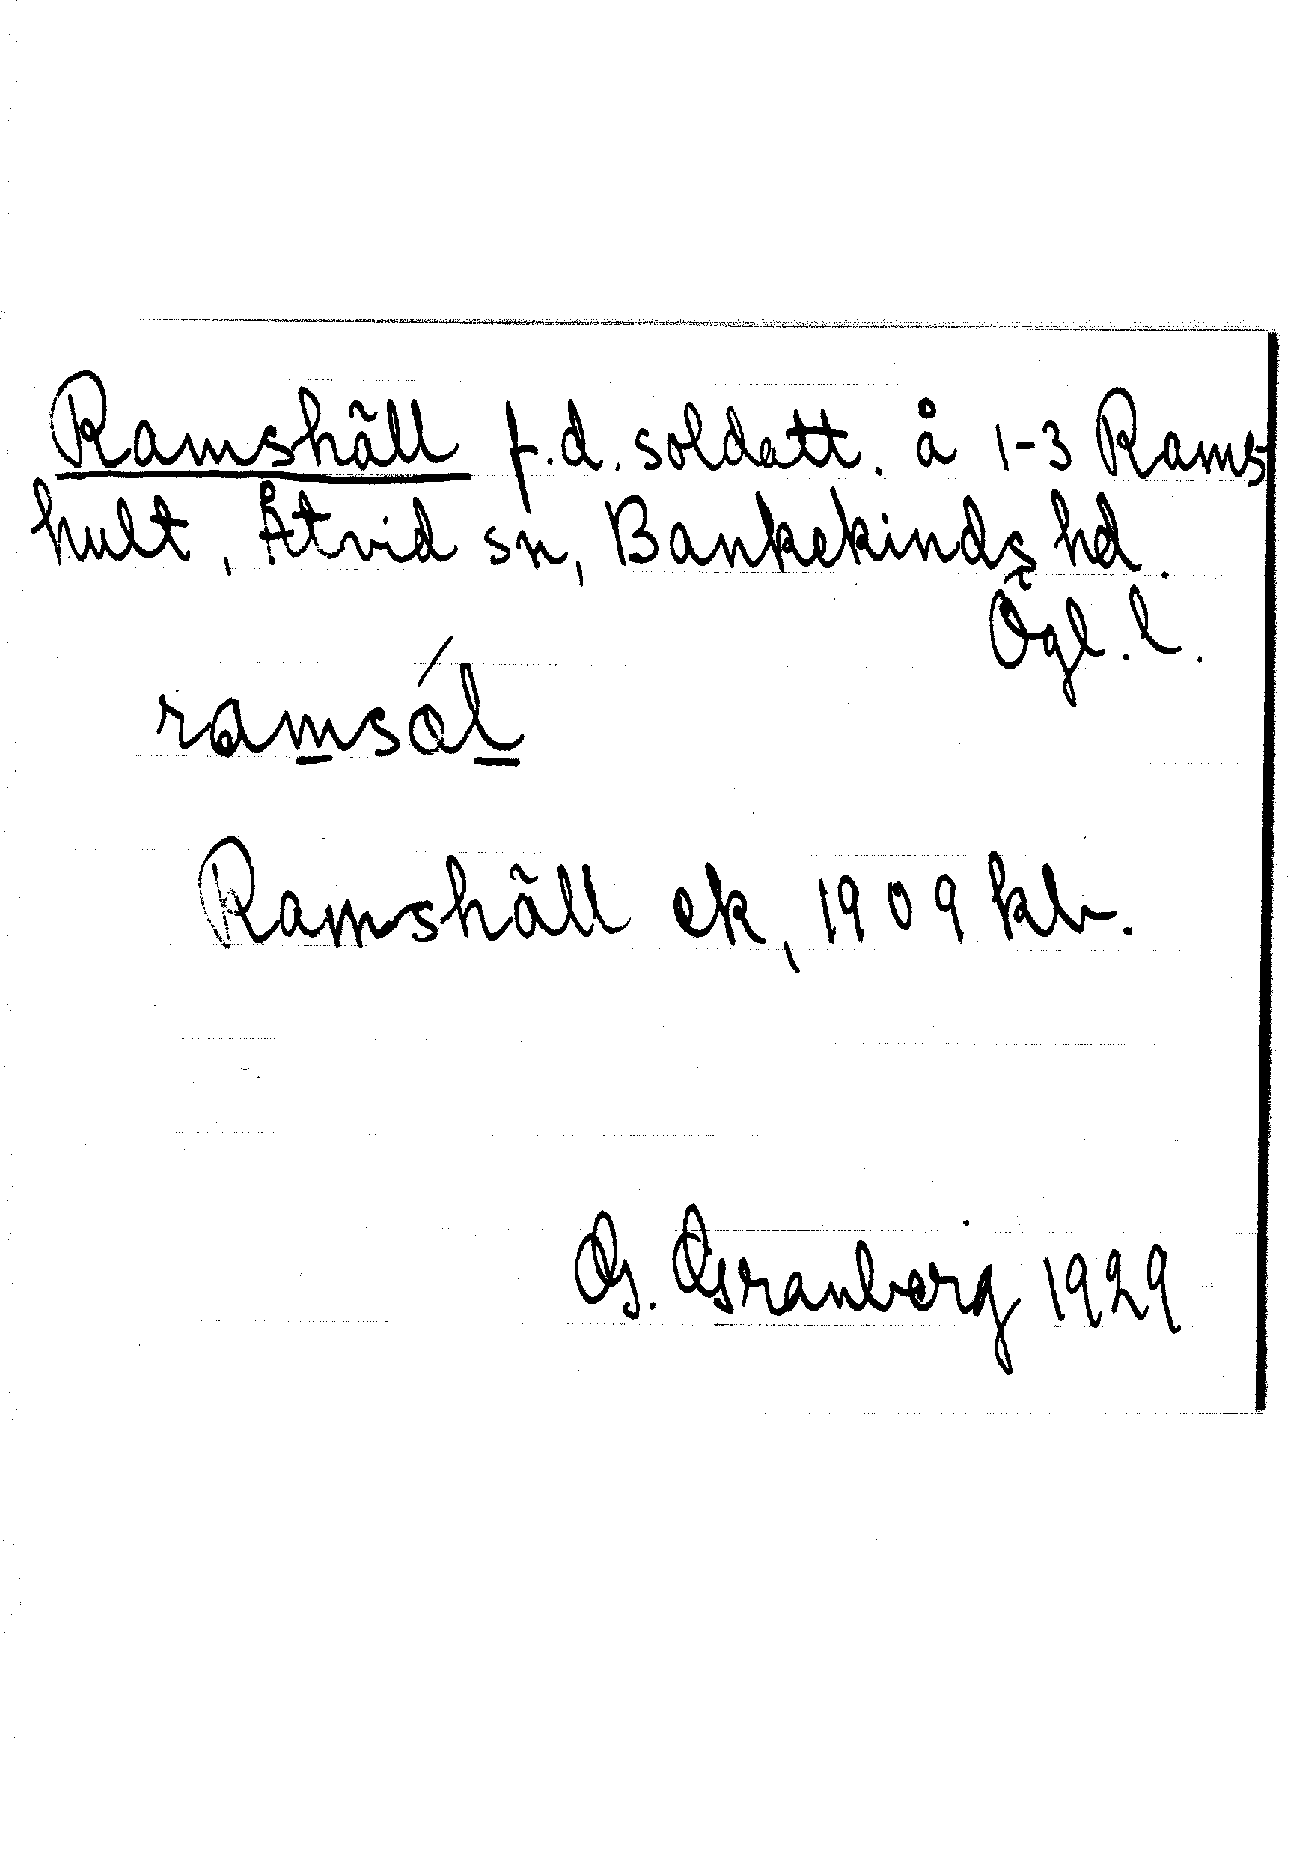 Ramshäll f.d. soldatt. å 1-3 Rams
hult, Åtvid sn, Bankekinds hd.
Ögl. l.
ramsál
Ramshäll ek, 1909 kb.
G. Granberg 1929